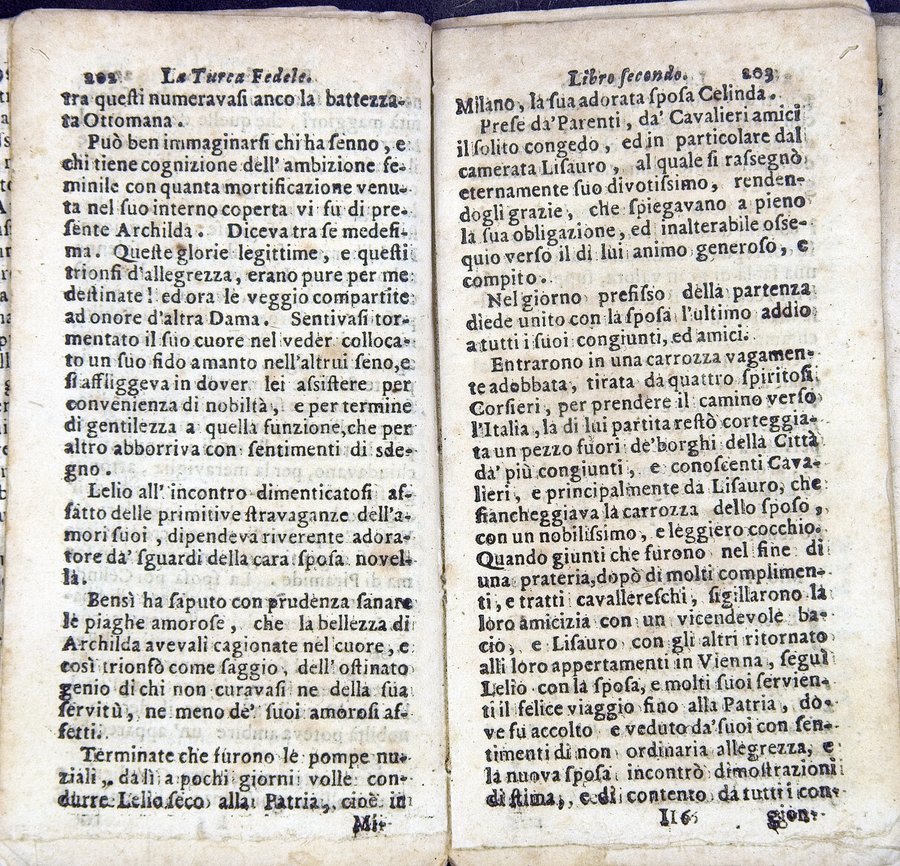 202 La Turca Fedele.
tra questi numeravasi anco la battezza-
ta Ottomana.
Può ben immaginarsi chi ha senno, e
chi tiene cognizione dell' ambizione fe-
minile con quanta mortificazione venu-
ta nel suo interno coperta vi fu di pre-
sente Archilda. Diceva tra se medesi-
ma. Queste glorie legittime, e questi
trionfi d'allegrezza, erano pure per me
destinate! ed ora le veggio compartite
ad onore d'altra Dama. Sentivasi tor-
mentato il suo cuore nel veder colloca-
to un suo fido amanto nell'altrui seno, e
si affliggeva in dover lei assistere per
convenienza di nobiltà, e per termine
di gentilezza a quella funzione, che per
altro abborriva con sentimenti di sde-
gno.
Lelio all' incontro dimenticatosi af-
fatto delle primitive stravaganze dell'a-
mori suoi, dipendeva riverente adora-
tore da' sguardi della cara sposa novel-
la.
Bensì ha saputo con prudenza sanare
le piaghe amorose, che la bellezza di
Archilda avevali cagionate nel cuore, e
così trionfò come saggio, dell' ostinato
genio di chi non curavasi ne della sua
servitù, ne meno de' suoi amorosi af-
fetti.
Terminate che furono le pompe nu-
ziali, da lì a pochi giorni volle con-
durre Lelio seco alla Patria, cioè in
Mi-
Libro secondo. 203
Milano, la sua adorata sposa Celinda.
Prese da' Parenti, da' Cavalieri amici
il solito congedo, ed in particolare dal
camerata Lisauro, al quale si rassegnò
eternamente suo divotissimo, renden-
dogli grazie, che spiegavano a pieno
la sua obligazione, ed inalterabile osse-
quio verso il di lui animo generoso, e
compito.
Nel giorno prefisso della partenza
diede unito con la sposa l'ultimo addio
a tutti i suoi congiunti, ed amici.
Entrarono in una carrozza vagamen-
te adobbata, tirata da quattro spiritosi
Corsieri, per prendere il camino verso
l'Italia, la di lui partita restò corteggia-
ta un pezzo fuori de' borghi della Città
da' più congiunti, e conoscenti Cava-
lieri, e principalmente da Lisauro, che
fiancheggiava la carrozza dello sposo,
con un nobilissimo, e leggiero cocchio.
Quando giunti che furono nel fine di
una prateria, dopò di molti complimen-
ti, e tratti cavallereschi, sigillarono la
loro amicizia con un vicendevole ba-
ciò, e Lisauro con gli altri ritornato
alli loro appertamenti in Vienna, seguì
Lelio con la sposa, e molti suoi servien-
ti il felice viaggio fino alla Patria, do-
ve fu accolto e veduto da' suoi con sen-
timenti di non ordinaria allegrezza, e
la nuova sposa incontrò dimostrazioni
di stima, e di contento da tutti i con-
I i 6 gion-